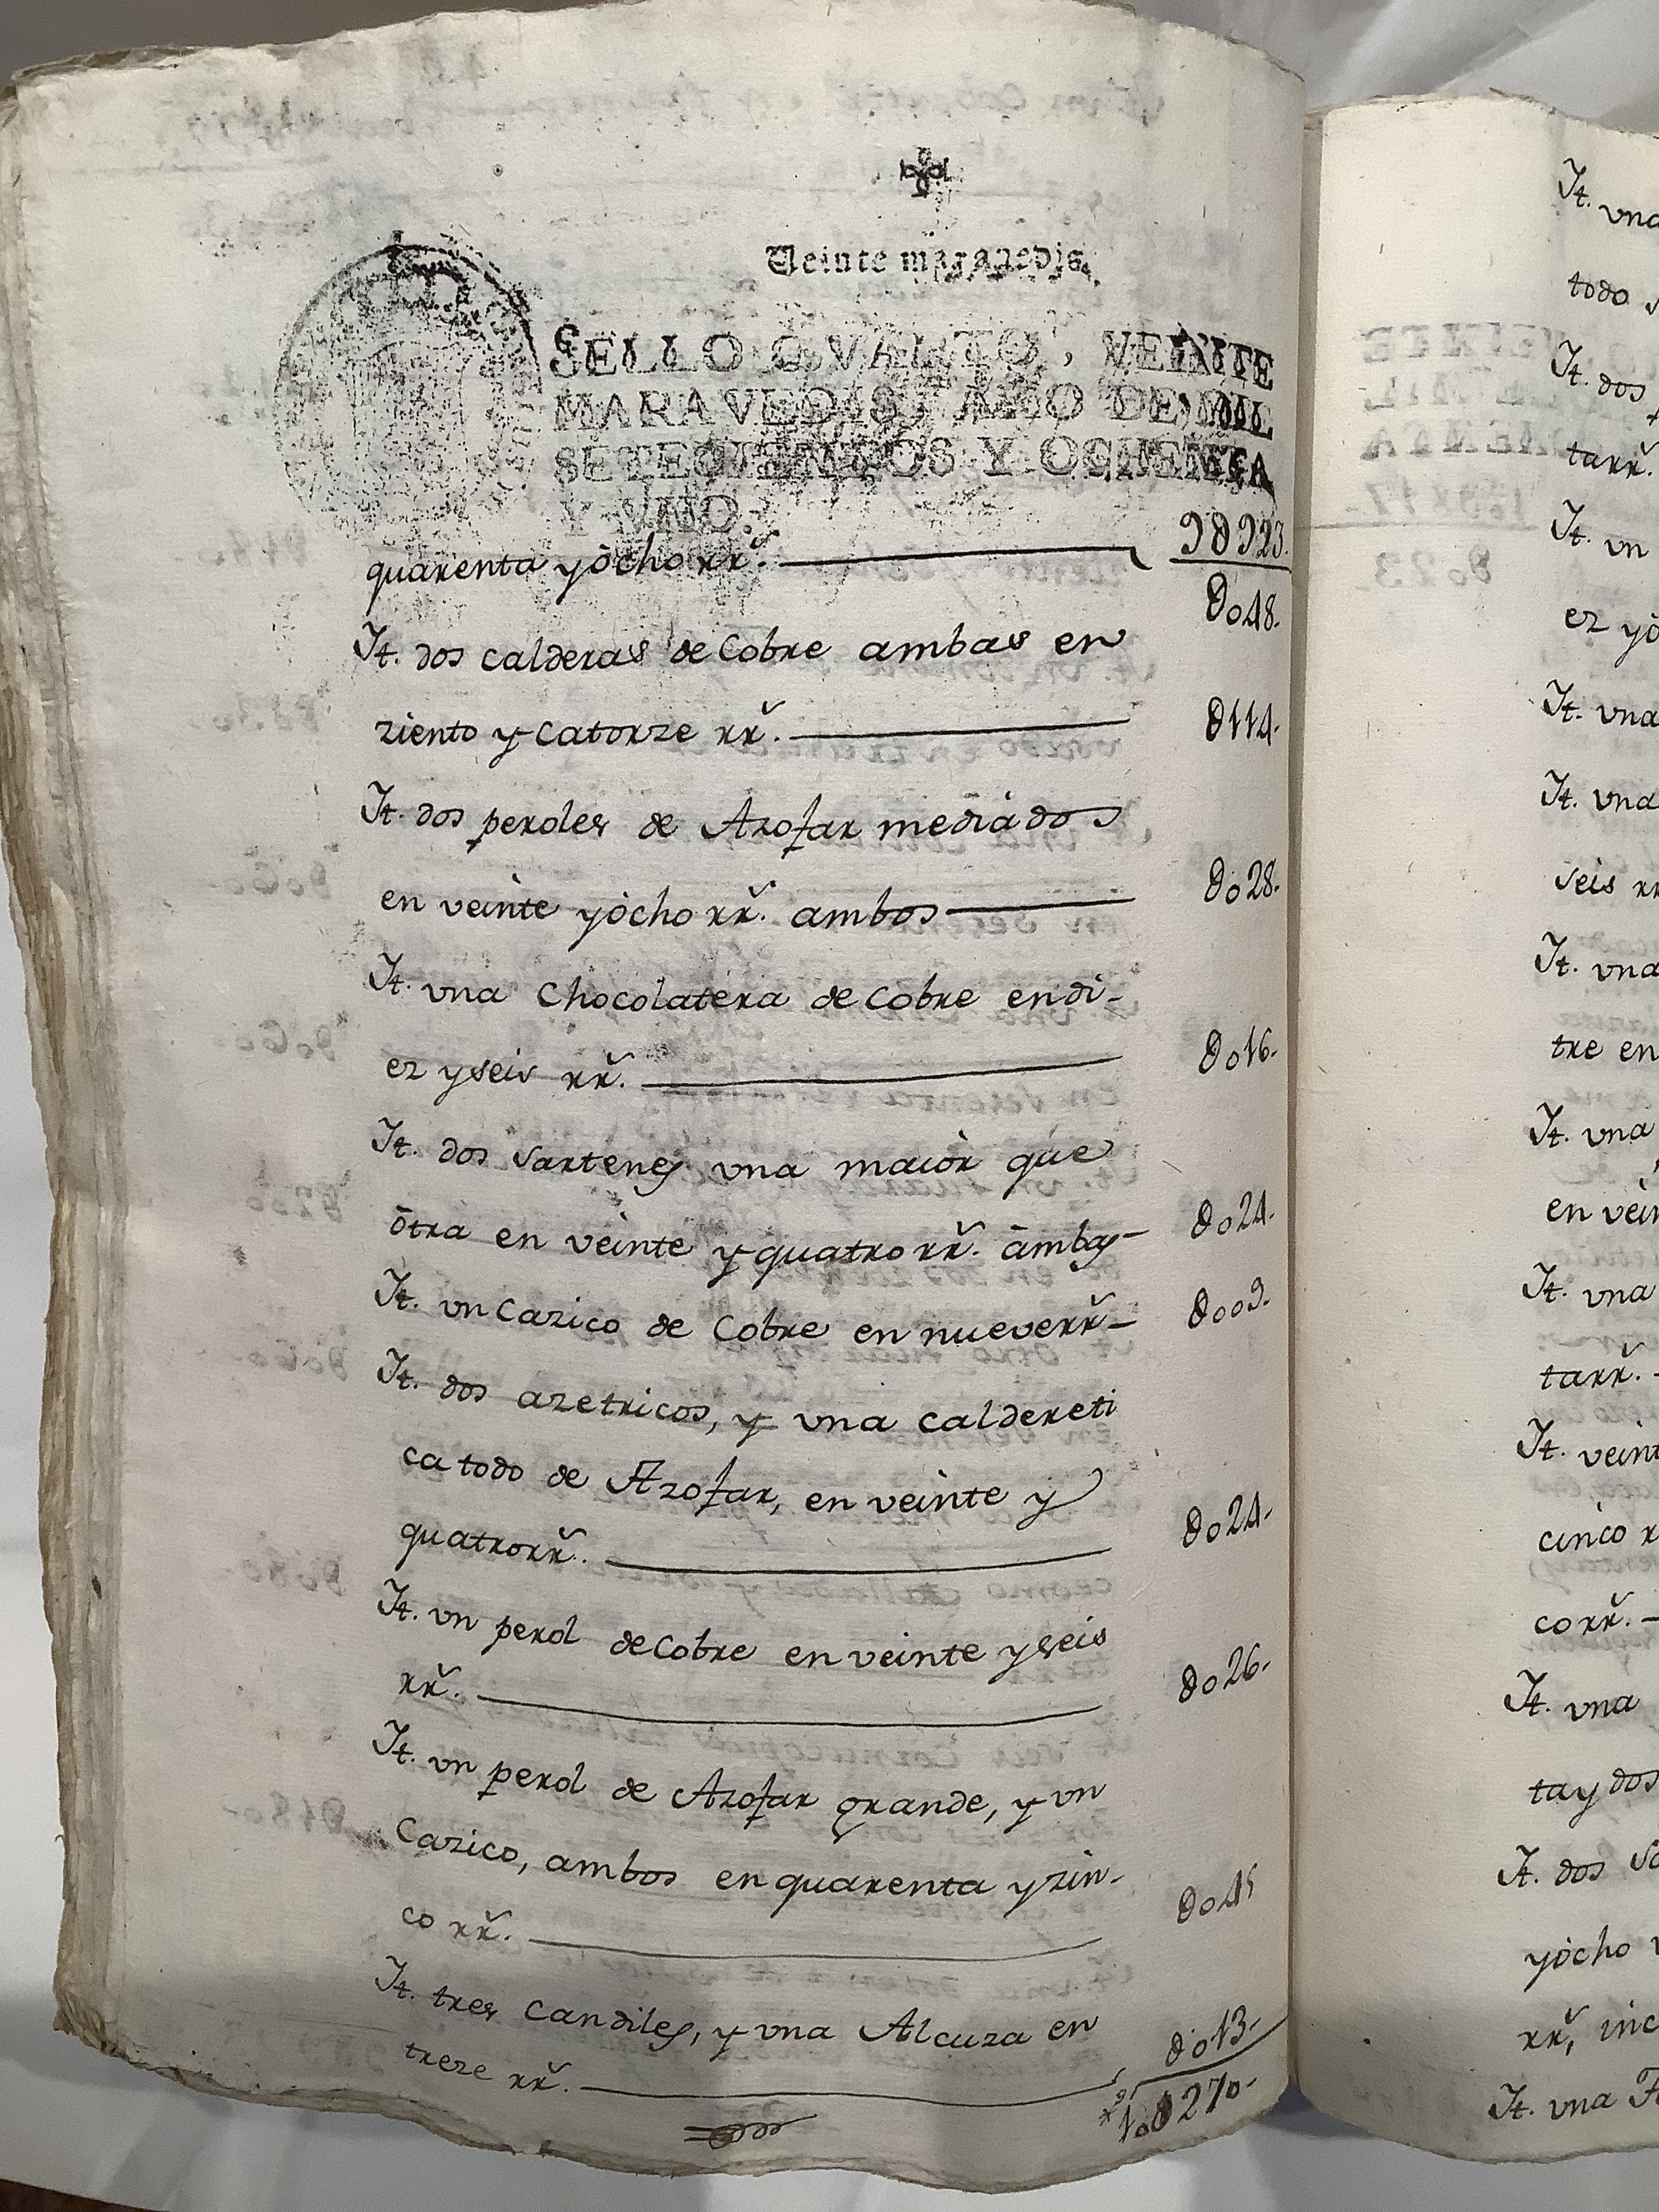 Veinte maravedis.
SELLO QVARTO, VEINTE
MARAVEDIS, AÑO DE MIL
SETECIENTOS Y OCHENTA
Y VNO.
9ϑ923.
quarenta yòcho rr.̃ ϑ048.
It. dos calderas de Cobre ambas en
ziento y catorze rr.̃ ϑ114.
It. dos peroles de Azofar mediàdos
en veìnte yòcho rr.̃ ambos ϑ028.
It. vna Chocolatera de Cobre en di-
ez y seis rr.̃ ϑ016.
It. dos Sartenes vna maiòr que
òtra en vèinte y quatro rr.̃ àmbas ϑ024.
It. vn Cazico de Cobre en nueve rr.̃ ϑ009.
It. dos azetricos, y vna caldereti
ca todo de Azofar, en veìnte y
quatro rr.̃ ϑ024.
It. vn perol de Cobre en veinte y seis
rr.̃ ϑ026.
It. vn perol de Azofar grande, y vn
Cazico, ambos en quarenta y zin-
co rr.̃ ϑ045
It. tres Candiles, y vna Alcuza en
treze rr.̃ ϑ013.
10ϑ270.
It. vna
todo
It. dos
ta rr.̃
It. vn
ez yò
It. vna
It. vna
seis rr
It. vna
tre en
It. vna
en vein
It. vna
ta rr.̃
It. veint
cinco r
co rr.̃
It. vna
ta y dos
It. dos Sa
yòcho
rr,̃ inc
It. vna